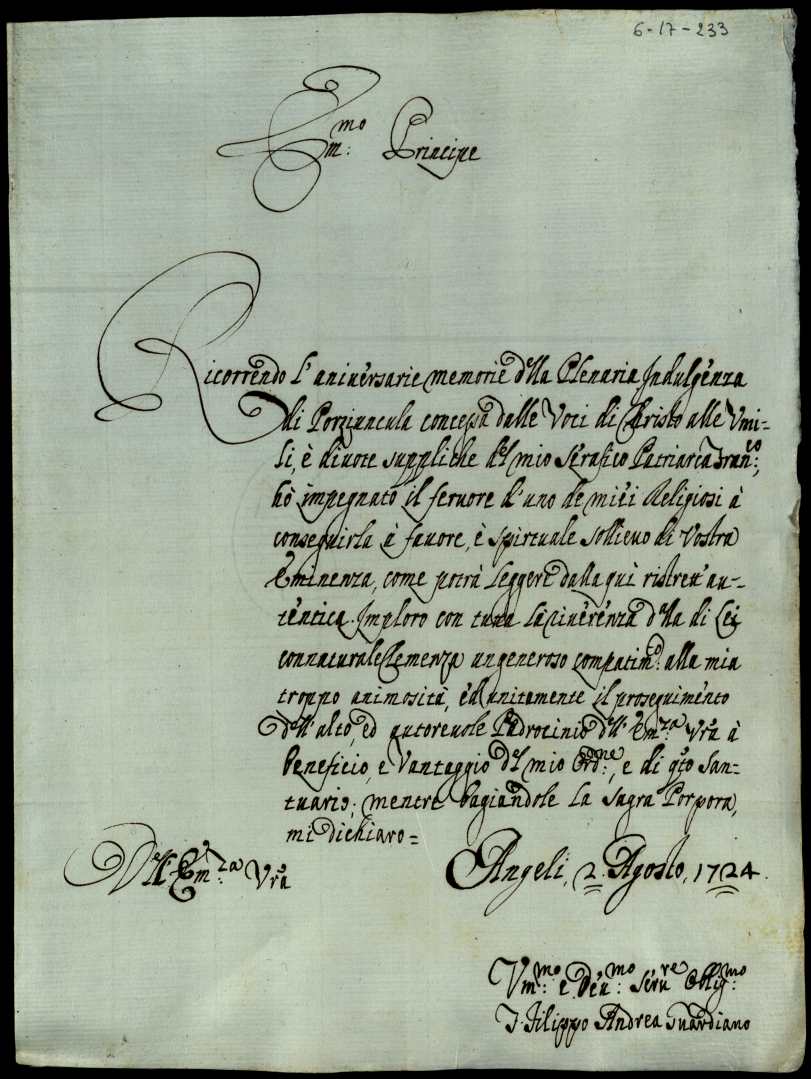 6-17-233
Em:mo Principe
Ricorrendo l'aniversarie memorie della Plenaria Indulgenza
di Porziuncula concessa dalle Voci di Christo alle Vmi-
li, è divote suppliche del mio Serafico Patriarca Fran:co,
hò impegnato il fervore d'uno de miei Religiosi à
conseguirla à favore, è spirituale sollievo di Vostra
Eminenza, come potrà leggere dalla quì ristrett'au-
tentica. Imploro con tutta la riverenza dalla di Lei
connaturale Clemenza un generoso compatim:to alla mia
troppo animosità, ed unitamente il proseguimento
dell'alto, ed autorevole Padrocinio dell'Em:za Vrã à
beneficio, e vantaggio del mio Ord:ne, e di qto San-
tuario; mentre bagiandole la sagra Porpora,
mi dichiaro=
Dell'Em:za Vrã
Angeli, 2. Agosto, 1724.
Vm:mo e Dev:mo Serv:re Oblig:mo
F. Filippo Andrea Guardiano